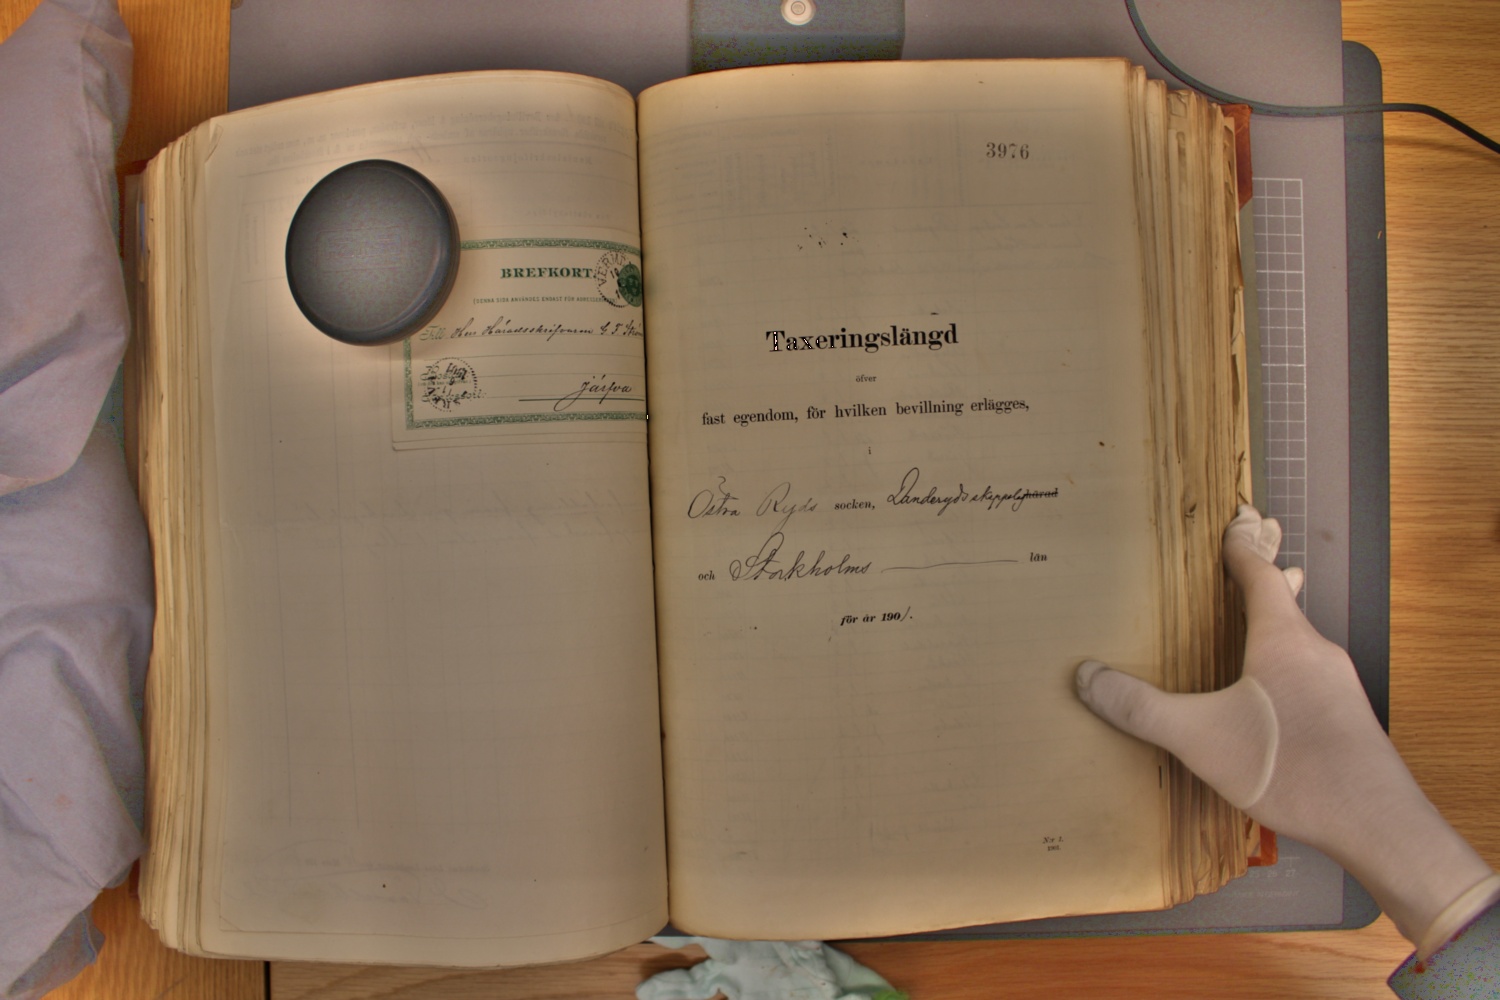 BREFKORT
(DENNA SIDA ANVÄNDES ENDAST FÖR ADRESSEN)
Till Herr Häradsskrifvaren G. F.
Järfva
3976
Taxeringslängd
öfver
fast egendom, för hvilken bevillning erlägges,
i
Östra Ryds socken, Danderyds skeppslag härad
och Stockholms län
för år 1901.
N:r 2.
1901.